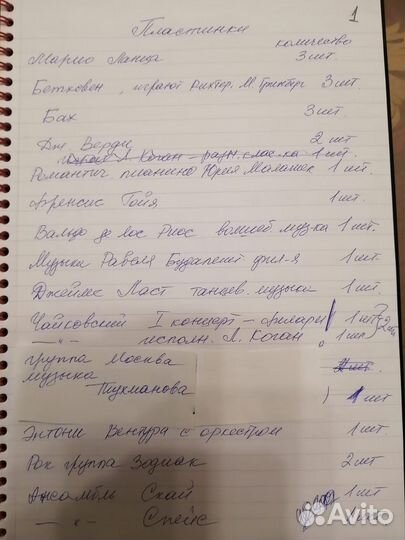 1
Пластинки
количество
Марио Ланца 3 шт.
Бетховен, играют Рихтер, М. Гринберг 3 шт.
Бах 3 шт.
Дж. Верди 2 шт
Л. Коган 1 шт.
Романтич пианино Юрея 1 шт.
Френсис Гойя 1 шт.
Вальдо де лос Риос волшеб. муз-ка 1 шт.
Музыка Равеля Будапешт фил-я 1 шт.
Джеймс Ласт танцев. музыка 1 шт.
Чайковский I концерт – 1 шт 2 шт
—"— исполн. Л. Коган 1 шт.
группа Москва
музыка
Тухманова 1 шт
Энтони Вентура с оркестром 1 шт.
Рок группа Зодиак 2 шт
Ансамбль Скай 1 шт
—"— Спейс
Avito